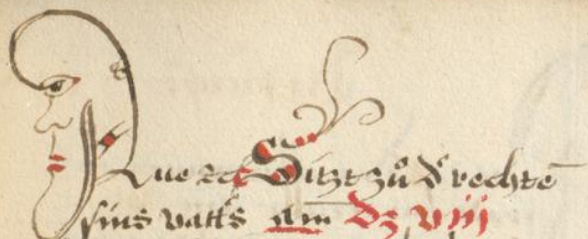 Aue ꝛc Sitzt zů dˀ rechtē
sins vatts am dz viij